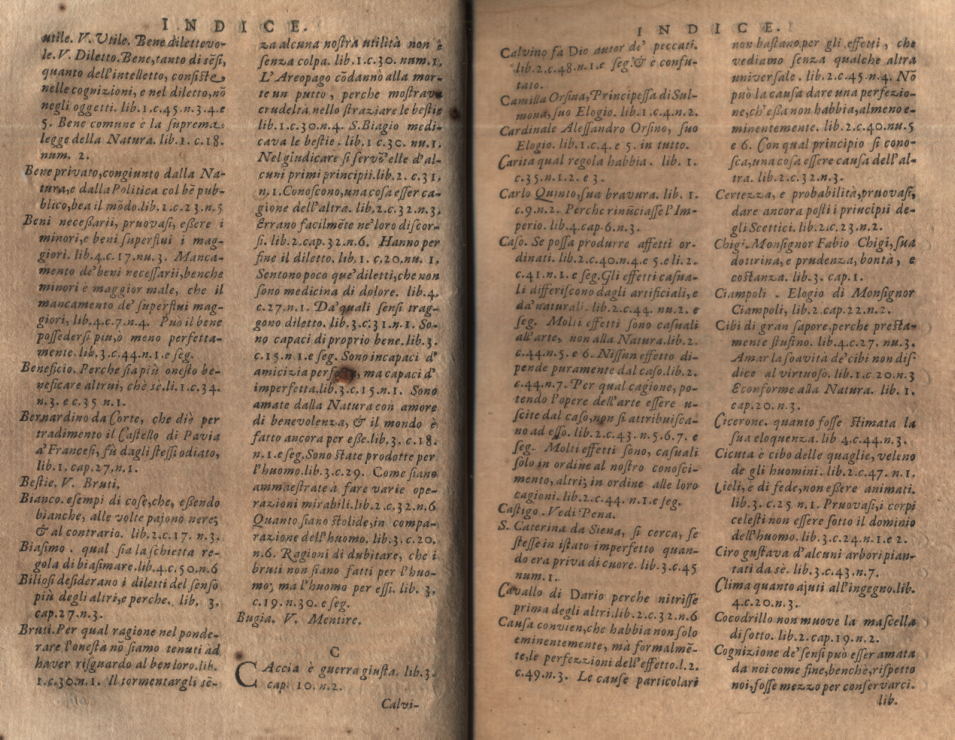 INDICE.
utile. V. Vtile. Bene dilettevo-
le. V. Diletto. Bene, tanto di sẽsi,
quanto dell'intelletto, consiste
nelle cognizioni, e nel diletto, nõ
negli oggetti. lib.1.c.45.n.3.4.e
5. Bene comune è la suprema
legge della Natura. lib.1.c.18.
num. 2.
Bene privato, congiunto dalla Na-
tura, e dalla Politica col bẽ pub-
blico, bea il mõdo. lib.1.c.23.n.5
Beni necessarii, pruovasi, essere i
minori, e beni superflui i mag-
giori. lib.4.c.17.nu.3. Manca-
mento de' beni necessarii, benche
minori è maggior male, che il
mancamento de' superflui mag-
giori, lib.4.c.7.n.4. Può il bene
possedersi piu, ò meno perfetta-
mente. lib.3.c.44.n.1.e seg.
Beneficio. Perche sia più onesto be-
neficare altrui, chè sè. li.1.c.34.
n.3. e c.35 n.1.
Bernardino da Corte, che diè per
tradimento il Castello di Pavia
a' Francesi, fù dagli stessi odiato,
lib.1. cap.27.n.1.
Bestie. V. Bruti.
Bianco. esempi di cose, che, essendo
bianche, alle volte pajono nere;
& al contrario. lib.2.c.17. n.3.
Biasimo. qual sia la schietta re-
gola di biasimare. lib.4.c.50.n.6
Biliosi desiderano i diletti del senso
più degli altri, e perche. lib. 3.
cap.27.n.3.
Bruti. Per qual ragione nel ponde-
rare l'onestà nõ siamo tenuti ad
haver risguardo al ben loro. lib.
1.c.30.n.1. Il tormentargli sẽ-
za alcuna nostra utilità non è
senza colpa. lib.1.c.30. num.1.
L'Areopago cõdannò alla mor-
te un putto, perche mostrava
crudeltà nello straziare le bestie
lib.1.c.30.n.4. S. Biagio medi-
cava le bestie. lib.1 c.30. nu.1.
Nel giudicare si servõ elle d'al-
cuni primi principii. lib.2. c.31,
n.1. Conoscono, una cosa esser ca-
gione dell'altra. lib.2.c.32.n.3.
Errano facilmẽte ne' loro discor-
si. lib.2.cap.32.n.6. Hanno per
fine il diletto. lib.1. c.20.nu.1.
Sentono poco que' diletti, che non
sono medicina di dolore. lib.4.
c.27.n.1. Da' quali sensi trag-
gono diletto. lib.3.c.31.n.1. So-
no capaci di proprio bene. lib.3.
c.15.n.1.e seg. Sono incapaci d'
amicizia ma capaci d'
imperfetta. lib.3.c.15.n.1. Sono
amate dalla Natura con amore
di benevolenza, & il mondo è
fatto ancora per esse. lib.3. c.18.
n.1.e seg. Sono state prodotte per
l'huomo. lib.3.c.29. Come siano
ammaestrate à fare varie ope-
razioni mirabili. lib.2.c.32.n.6
Quanto siano stolide, in compa-
razione dell'huomo. lib.3.c.20.
n.6. Ragioni di dubitare, che i
bruti non siano fatti per l'huo-
mo, ma l'huomo per essi. lib. 3.
c.19.n.30.e seg.
Bugia. V. Mentire.
C
CAccia è guerra giusta. lib.3.
cap. 10.n.2.
Calvi-
INDICE.
Calvino fa Dio autor de' peccati.
lib.2.c.48.n.1.e seg. & è confu-
tato.
Camilla Orsina, Principessa di Sul-
mona, suo Elogio. lib.1.c.4.n.2.
Cardinale Alessandro Orsino, suo
Elogio. lib.1.c.4.e 5. in tutto.
Carità qual regola habbia. lib. 1.
c.35.n.1.2. e 3.
Carlo Quinto, sua bravura. lib. 1.
c.9.n.2. Perche rinũciasse l'Im-
perio. lib.4.cap.6.n.3.
Caso. Se possa produrre affetti or-
dinati. lib.2.c.40.n.4.e 5.e li.2.
c.41.n.1.e seg. Gli effetti casua-
li differiscono dagli artificiali, e
da' naturali. lib.2.c.44. nu.2. e
seg. Molti effetti sono casuali
all'arte, non alla Natura. lib.2.
c.44.n.5.e 6. Nissun effetto di-
pende puramente dal caso. lib.2.
c.44.n.7. Per qual cagione, po-
tendo l'opere dell'arte essere u-
scite dal caso, non si attribuisca-
no ad esso. lib.2.c.43. n.5.6.7. e
seg. Molti effetti sono, casuali
solo in ordine al nostro conosci-
mento, altri, in ordine alle loro
cagioni. lib.2.c.44. n.1.e seg.
Castigo. Vedi Pena.
S. Caterina da Siena, si cerca, se
stesse in istato imperfetto quan-
do era priva di cuore. lib.3.c.45
num.1.
Cavallo di Dario perche nitrisse
prima degli altri. lib.2.c.32.n.6
Causa convien, che habbia non solo
eminentemente, mà formalmẽ-
te, le perfezzioni dell'effetto. l.2.
c.49.n.3. Le cause particolari
non bastano per gli effetti, che
vediamo senza qualche altra
universale. lib.2.c.45.n.4. Nõ
può la causa dare una perfezio-
ne, ch'essa non habbia, almeno e-
minentemente. lib.2.c.40.nu.5
e 6. Con qual principio si cono-
sca, una cosa essere causa dell'al-
tra. lib.2.c.32.n.3.
Certezza, e probabilità, pruovasi,
dare ancora posti i principii de-
gli Scettici. lib.2.c.23.n.2.
Chigi. Monsignor Fabio Chigi, sua
dottrina, e prudenza, bontà, e
costanza. lib.3. cap.1.
Ciampoli. Elogio di Monsignor
Ciampoli, lib.2.cap.22.n.2.
Cibi di gran sapore, perche presta-
mente stufino. lib.4.c.27. nu.3.
Amar la soavità de' cibi non dis-
dice al virtuoso. lib.1.c.20.n.3
E conforme alla Natura. lib. 1.
cap.20.n.3.
Cicerone. quanto fosse stimata la
sua eloquenza. lib 4.c.44.n.3.
Cicuta è cibo delle quaglie, veleno
de gli huomini. lib.2.c.47. n.1.
Cieli, è di fede, non essere animati.
lib.3.c.25 n.1. Pruovasi, i corpi
celesti non essere sotto il dominio
dell'huomo. lib.3.c.24.n.1.e 2.
Ciro gustava d'alcuni arbori pian-
tati da sè. lib.3.c.43.n.7.
Clima quanto ajuti all'ingegno. lib.
4.c.20.n.3.
Cocodrillo non muove la mascella
di sotto. lib.2.cap.19.n.2.
Cognizione de' sensi può esser amata
da noi come fine, benchè, rispetto
noi, fosse mezzo per conservarci.
lib.